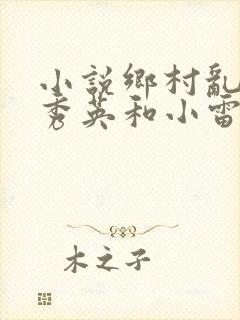 小說鄉村亂
秀英和小雷
木之子